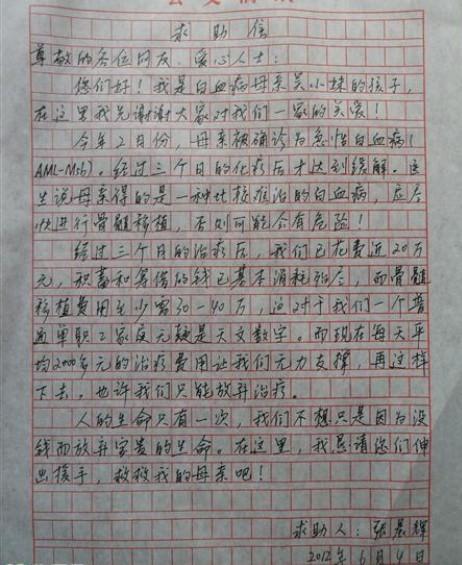 求助信
尊敬的各位网友、爱心人士:
你们好!我是白血病母亲吴小妹的孩子,
在这里我先谢谢大家对我们一家的关爱!
今年2月份,母亲被确诊为急性白血病(
AML-M5b)。经过三个月的化疗后才达到缓解。医
生说母亲得的是一种比较难治的白血病,应尽
快进行骨髓移植,否则可能会有危险!
经过三个月的治疗后,我们已花费近20万
元,积蓄和筹借的钱已基本消耗殆尽,而骨髓
移植费用至少需30-40万,这对于我们一个普
通单职工家庭无疑是天文数字。而现在每天平
均2000多元的治疗费用让我们无力支撑,再这样
下去,也许我们只能放弃治疗。
人的生命只有一次,我们不想只是因为没
钱而放弃宝贵的生命。在这里,我恳请您们伸
出援手,救救我的母亲吧!
求助人:张晨辉
2012年6月4日